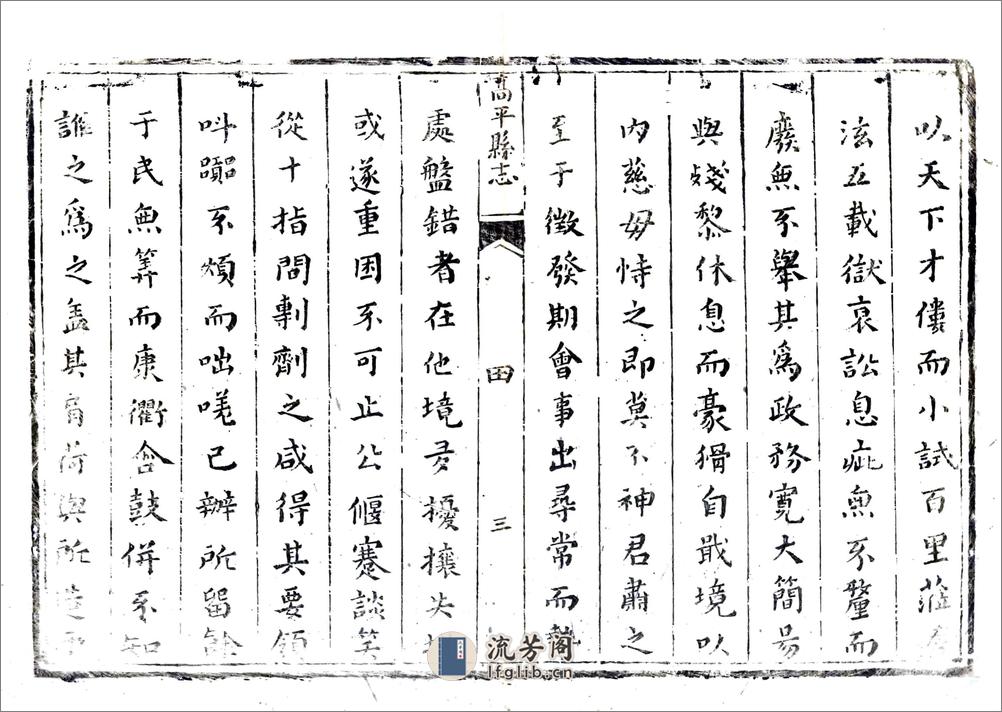 以天下才僂而小試百里蒞
泫五載獄哀訟息疵無不釐而
廢無不舉其爲政務寬大簡易
與殘黎休息而豪猾自戢境以
內慈母恃之即莫不神君肅之
至于徵發期會事出尋常而勢
高平縣志
田
三
處盤錯者在他境多擾攘失
或遂重困不可止公偃蹇談笑
從十指間剸劑之咸得其要領
叫躢不煩而咄嗟已辦所留餘
于民無筭而康衢含鼓併不知
誰之爲之盖其肩荷與所
流芳阁
lfglib.cn